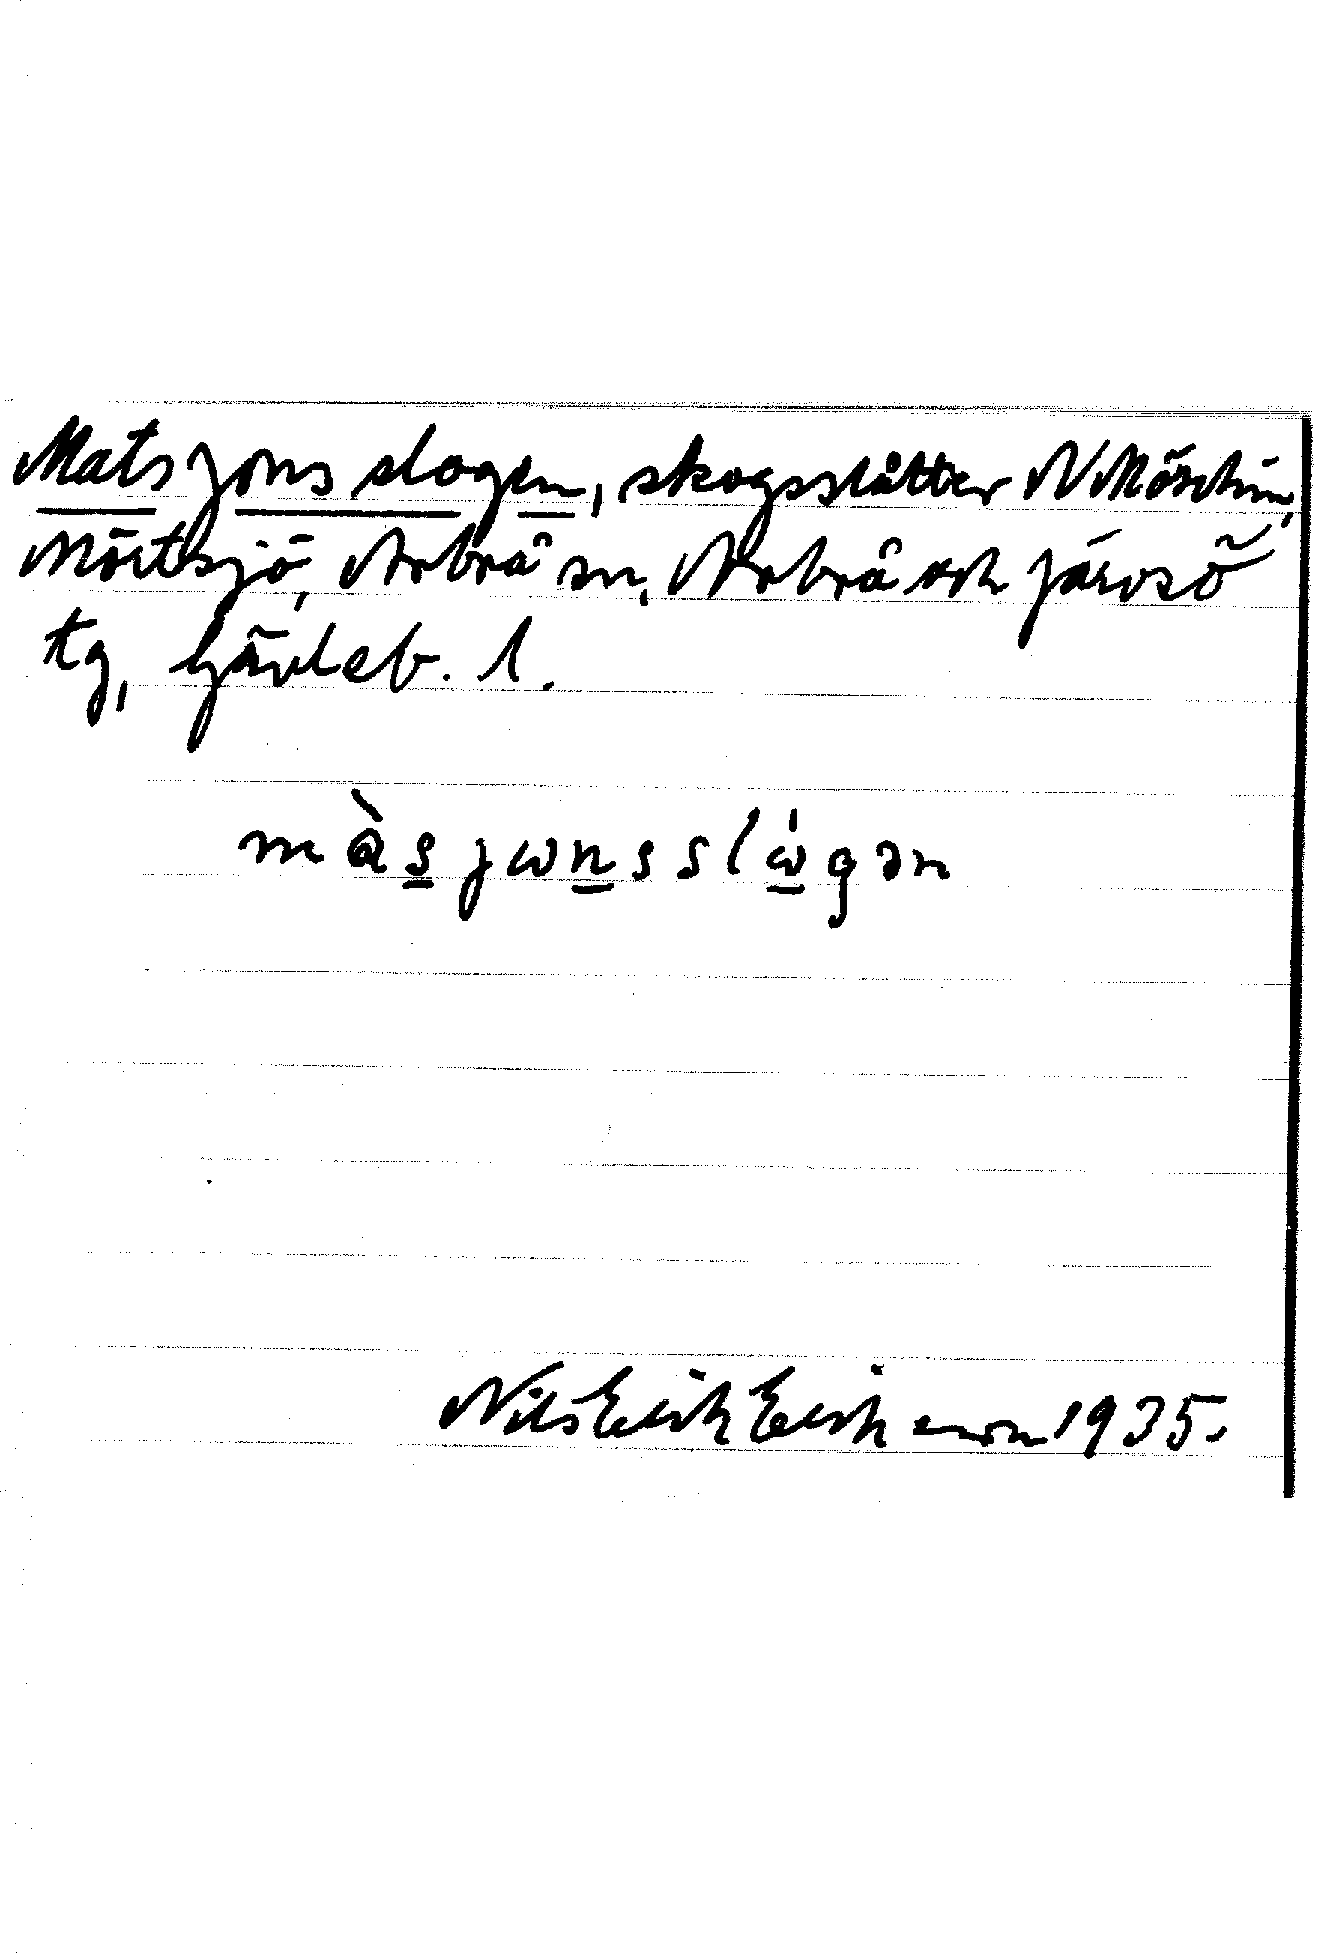 Mats Jons slogen, skogsslåtter N Mörtsjön,
Mörtsjö, Arbrå sn, Arbrå och Järvsö
tg, Gävleb. l.
màs jωnsslὼgən
Nils Erik Eriksson 1935.